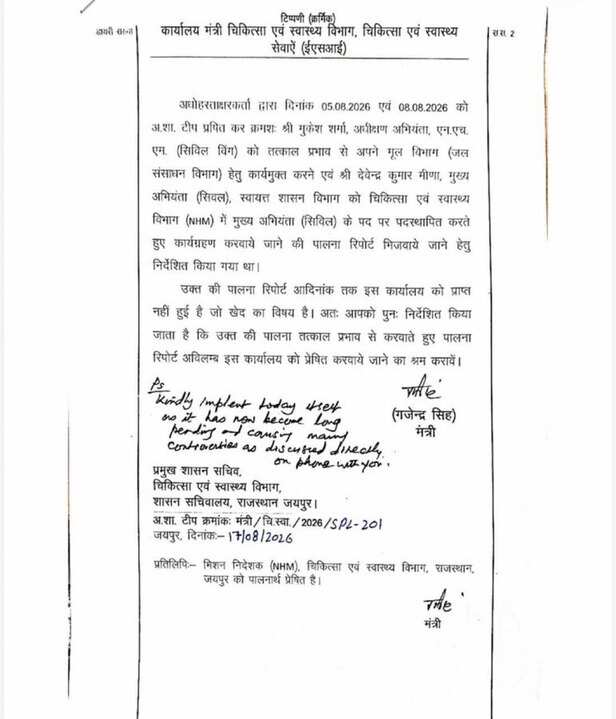 टिप्पणी (क्रर्मिक)
डायरी संख्या
कार्यालय मंत्री चिकित्सा एवं स्वास्थ्य विभाग, चिकित्सा एवं स्वास्थ्य
स.स. 2
सेवाऐं (ईएसआई)
अधोहस्ताक्षरकर्ता द्वारा दिनांक 05.08.2026 एवं 08.08.2026 को
अ.शा. टीप प्रषित कर क्रमशः श्री मुकेश शर्मा, अधीक्षण अभियंता, एन.एच.
एम. (सिविल विंग) को तत्काल प्रभाव से अपने मूल विभाग (जल
संसाधन विभाग) हेतु कार्यमुक्त करने एवं श्री देवेन्द्र कुमार मीणा, मुख्य
अभियंता (सिवल), स्वायत्त शासन विभाग को चिकित्सा एवं स्वास्थ्य
विभाग (NHM) में मुख्य अभियंता (सिविल) के पद पर पदस्थापित करते
हुए कार्यग्रहण करवाये जाने की पालना रिपोर्ट भिजवाये जाने हेतु
निर्देशित किया गया था।
उक्त की पालना रिपोर्ट आदिनांक तक इस कार्यालय को प्राप्त
नहीं हुई है जो खेद का विषय है। अतः आपको पुनः निर्देशित किया
जाता है कि उक्त की पालना तत्काल प्रभाव से करवाते हुए पालना
रिपोर्ट अविलम्ब इस कार्यालय को प्रेषित करवाये जाने का श्रम करावें।
Ps
Kindly implent today itself
as it has now become long
pending and causing many
controverties as discussed directly
on phone with you.
(गजेन्द्र सिंह)
मंत्री
प्रमुख शासन सचिव,
चिकित्सा एवं स्वास्थ्य विभाग,
शासन सचिवालय, राजस्थान जयपुर।
अ.शा. टीप क्रमांकः मंत्री/चि.स्वा./2026/SPL-201
जयपुर, दिनांकः- 17/08/2026
प्रतिलिपिः- मिशन निदेशक (NHM), चिकित्सा एवं स्वास्थ्य विभाग, राजस्थान,
जयपुर को पालनार्थ प्रेषित है।
मंत्री